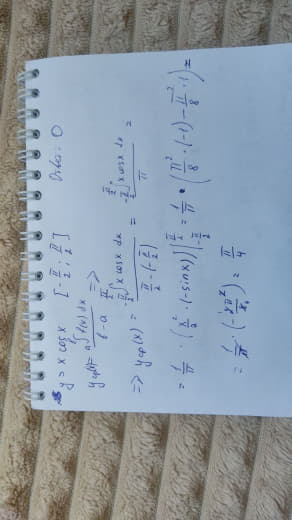 y = x cosx [-π/2 ; π/2] Ответ: 0
yср(x) = a∫b f(x) dx / b-a =>
=> yср(x) = -π/2∫π/2 x cosx dx / π/2 - (-π/2) = -π/2∫π/2 x cosx dx / π =
= 1/π · (x²/2 · (-sinx)) |-π/2 π/2 = 1/π · (π²/8 · (-1) - π²/8 · 1) =
= 1/π · (-) = π/4